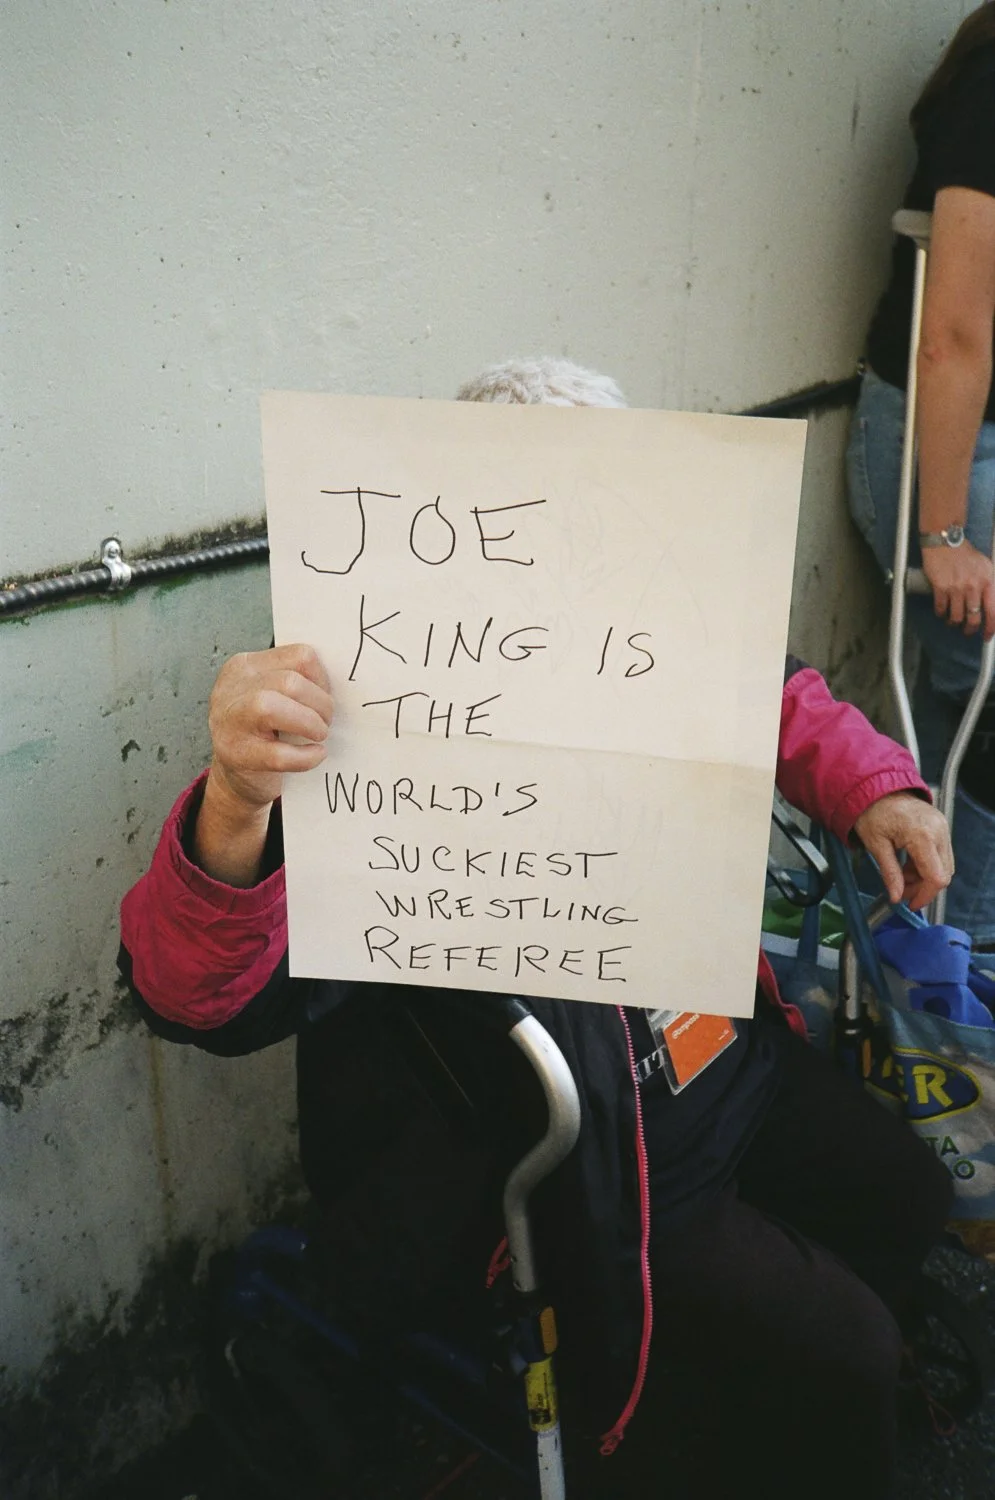 JOE
KING IS
THE
WORLD'S
SUCKIEST
WRESTLING
REFEREE